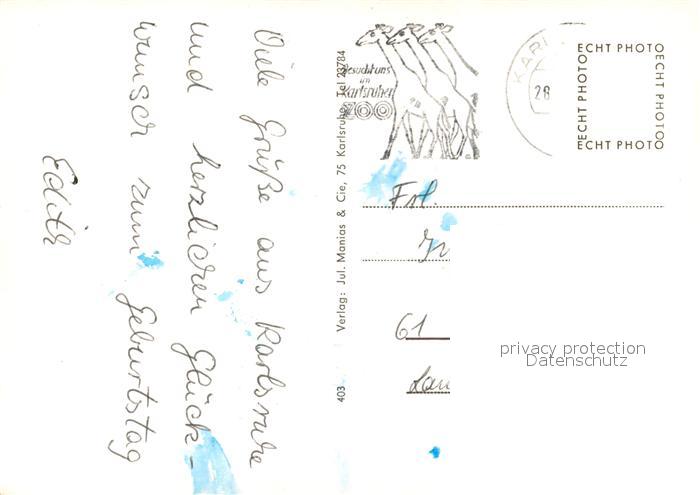 Viele Grüße aus Karlsruhe
und herzlichen Glück-
wunsch zum Geburtstag
Edith
403 Verlag: Jul. Manias & Cie, 75 Karlsruhe, Tel 23784
Besucht uns
im
Karlsruher
ZOO
KARL
28
ECHT PHOTO
ECHT PHOTO
ECHT PHOTO
ECHT PHOTO
Frl.
61
privacy protection
Datenschutz